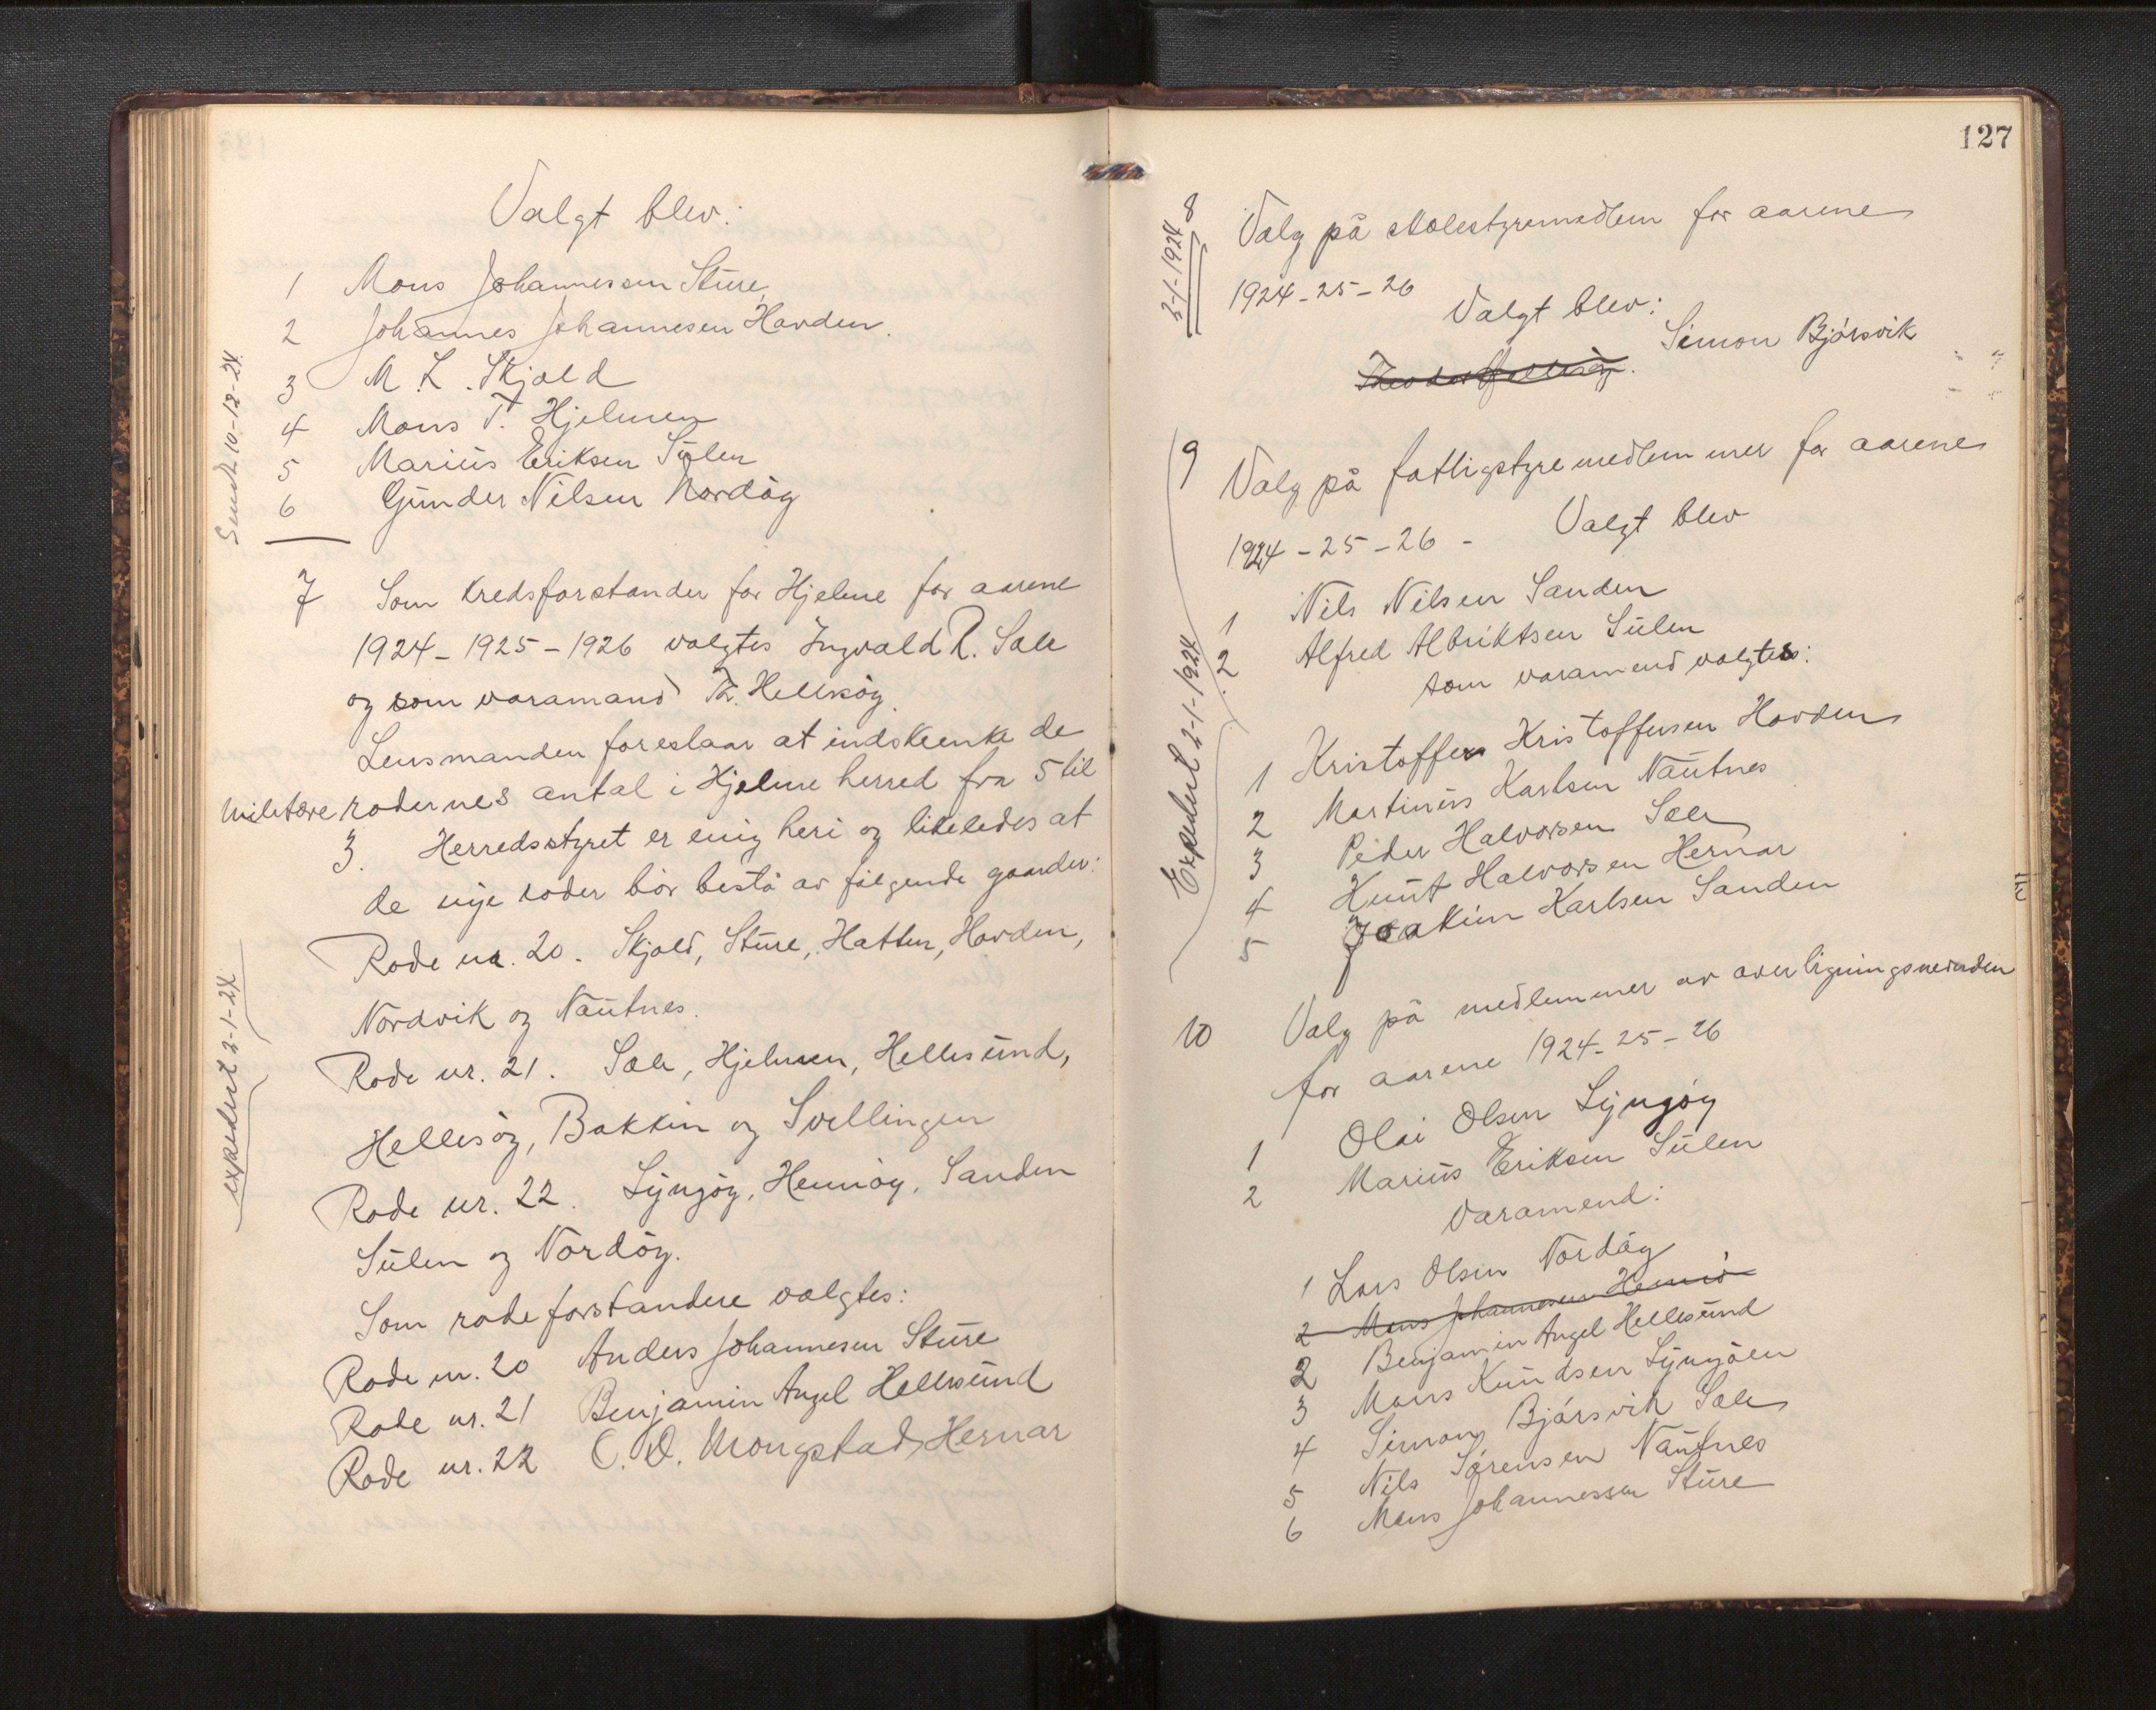 Valgt blev:
1 Mons Johannessen Sture
2 Johannes Johannesen Hovden.
3 M. L. Skjold
4 Mons T. Hjelmen
5 Marius Eriksen Sulen
6 Gunder Nilsen Nordöy
Sendt 10-12-24.
7 Som kredsforstander for Hjelme for aarene
1924-1925-1926 valgtes Ingvald R. Sæle
og som varamand Th. Hellesöy.
Lensmanden foreslaar at indskrenke de
militære rodernes antal i Hjelme herred fra 5 til
3. Herredsstyret er enig heri og likeledes at
de nye roder bör bestå av fölgende gaarder:
Rode nr. 20. Skjold, Sture, Hatten, Hovden,
Nordvik og Nautnes.
Rode nr. 21. Sæle, Hjelmen, Hellesund,
Hellesöy, Bakken og Svellingen
Rode nr. 22. Lyngöy, Hernöy, Sanden
Sulen og Nordöy.
Som rodeforstandere valgtes:
Rode nr. 20 Anders Johannesen Sture
Rode nr. 21 Benjamin Angel Hellesund
Rode nr. 22 O. D. Mongstad, Hernar
expedert 2-1-24
127
2-1-1924
8 Valg på skolestyremedlem for aarene
1924-25-26
Valgt blev:
Simon Bjørsvik
Theodor Hellesöy.
9 Valg på fattigstyremedlemmer for aarene
1924-25-26 - Valgt blev
1 Nils Nilsen Sanden
2 Alfred Albriktsen Sulen
som varamend valgtes:
1 Kristoffer Kristoffersen Hovden
2 Martinus Karlsen Nautnes
3 Peder Halvorsen Sæle
4 Knut Halvorsen Hernar
5 Joakim Karlsen Sanden
Expedert 2-1-1924
10 Valg på medlemmer av overligningsnevnden
for aarene 1924-25-26
1 Olai Olsen Lyngöy
2 Marius Eriksen Sulen
Varamend:
1 Lars Olsen Nordöy
2 Mons Johannesen Hernö
2 Benjamin Angel Hellesund
3 Mons Knudsen Lyngöen
4 Simon Bjørsvik Sæle
5 Nils Sørensen Nautnes
6 Mons Johannessen Sture